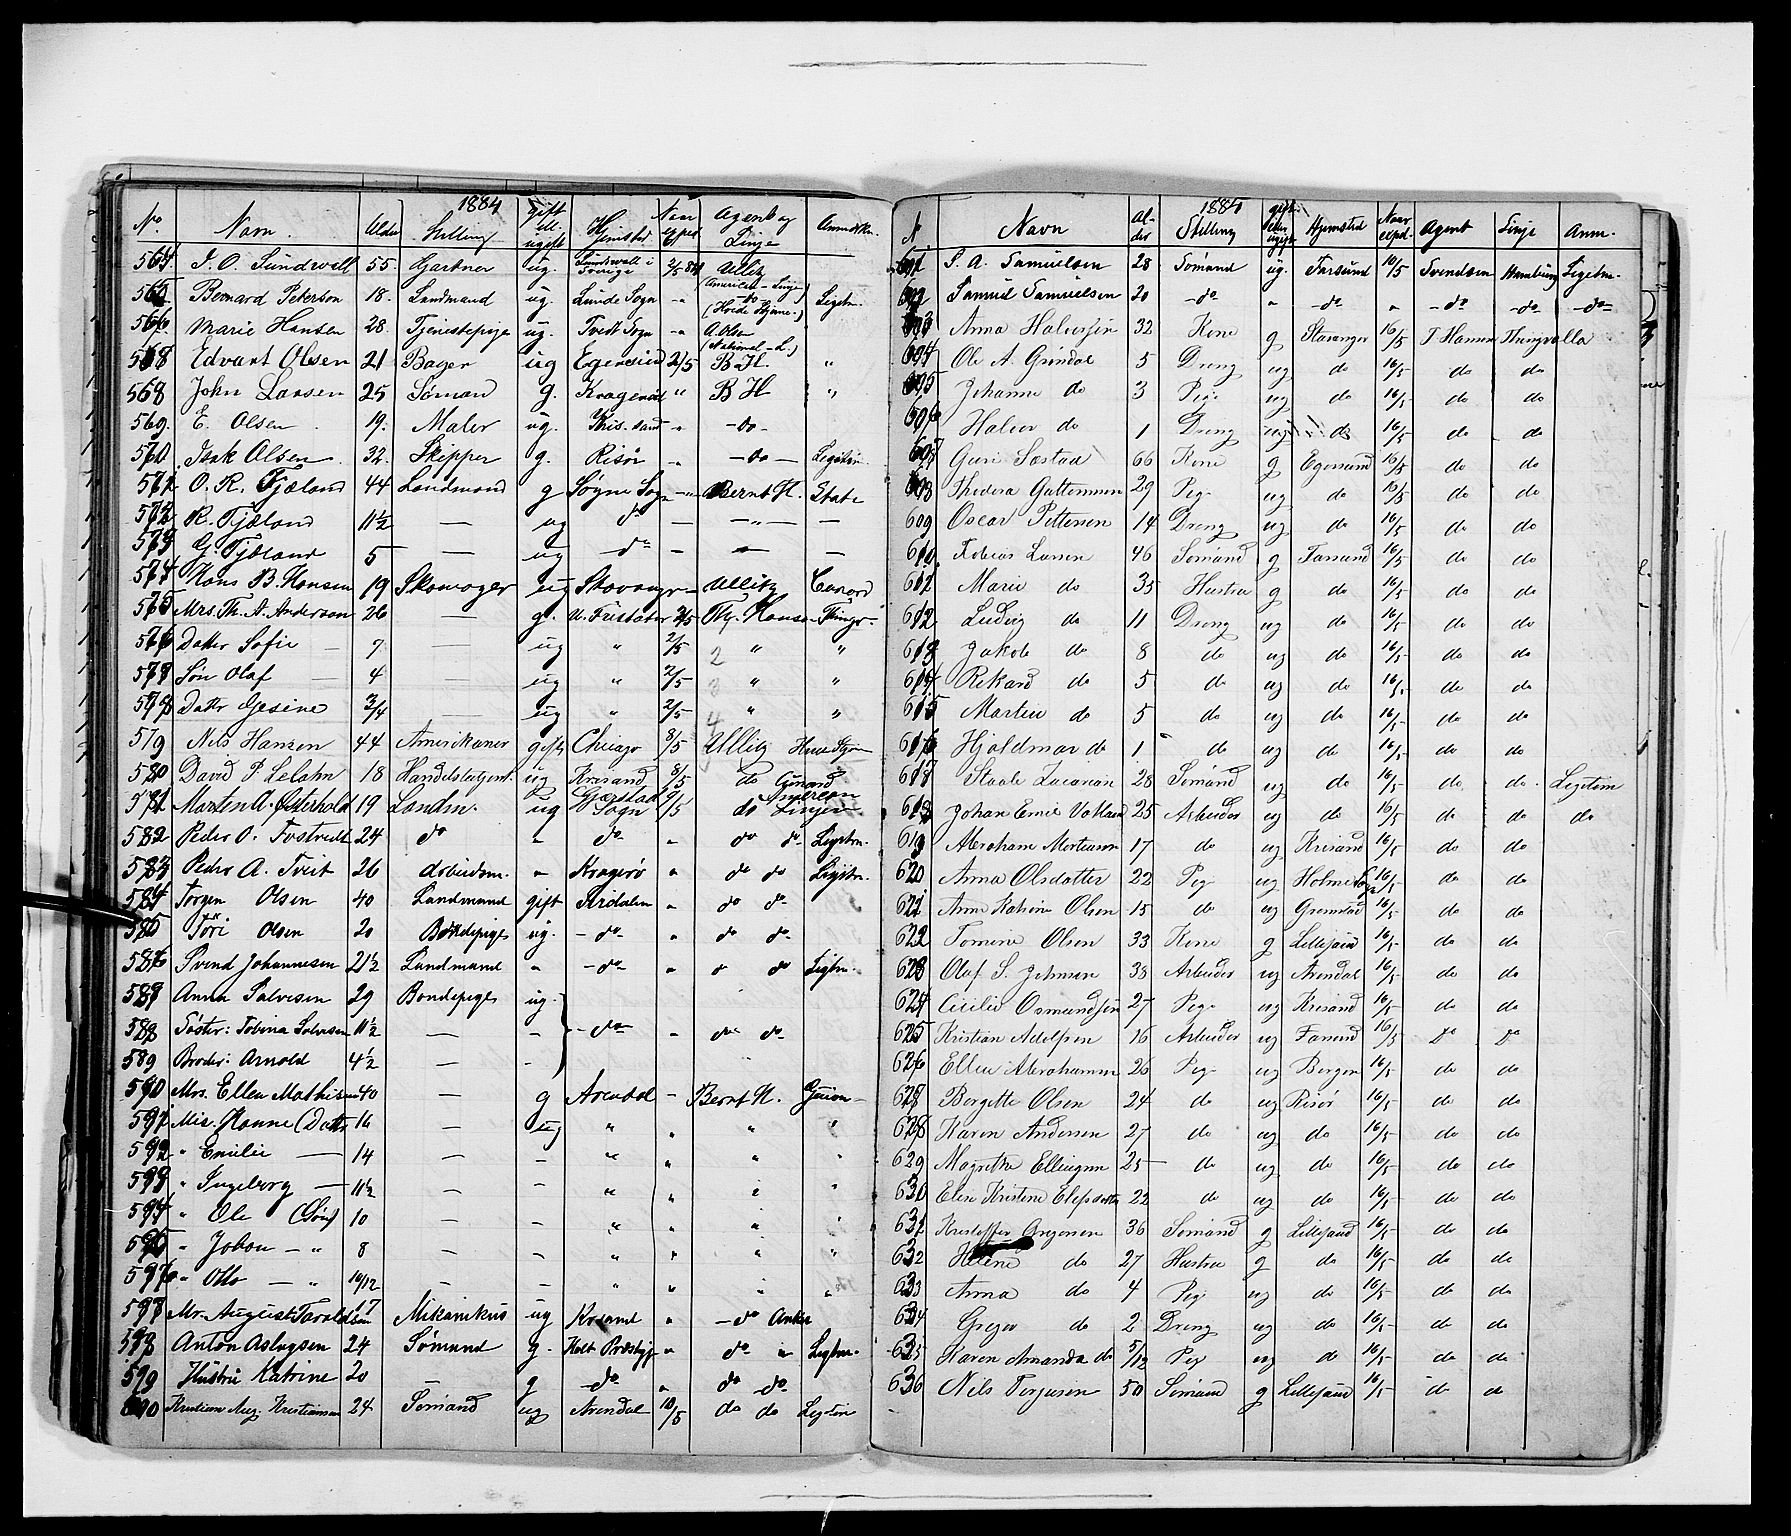 1884
No. Navn. Alder Stilling Gift ell. ugift Hjemsted Naar exped Agent og Linje Anmærkn.
564. J. O. Sundwall 55. Gartner ug. Sundsvall i Sverige 2/5 84 Ullitz (American-Linje)
565 Bernard Peterson 18. Landmand ug. Lunde Sogn -"- -do- Legitm.
566 Marie Hansen 28. Tjenestepige ug. Tveit Sogn -"- A Olsen (National-L.)
568 Edvart Olsen 21 Bager ug 2/5 B. H. "
568 John Larsen 25 Søman g. Kragerø " B H "
569. E. Olsen 19. Maler ug. Kris.sand -"- -do-
570 Isak Olsen 32. Skipper g. Risør -"- -do- Legitim.
571 O. R. Fjæland 44 Landmand g Søgne Sogn -"- Bernt H. State
572 R. Fjæland 11½ — ug do — -"- —
573 G. Fjæland 5 — ug -do- — — —
574 Hans B. Hansen 19 Skomager ug Stavanger - Ullitz Cunard
575 Mrs. Th. A. Anderson 26 g. U. Fristater 2/5 Th. Hansen Thingv.
576 Datter Sofie — 7 — ug " 2/5 " "
577 Søn Olaf — 4 — ug " 2/5 " "
578 Datter Gesine 3/4 — ug " 2/5 " "
579 Nils Hansen 44 Amerikaner gift Chicago 8/5 Ullitz
580 David P Lelohn 18 Handelsbetjent. ug Krisand 8/5 do Cunard
581 Morten A. Østerhold 19 Landm. ug Gjerstad Sogn 9/5 do American Linjen
582 Peder O. 24 do " do " do do Legitm.
583 Peder A. Tveit 26 Arbeidsm. " Kragerø " do do Legitm.
584 Torgen Olsen 40 Landmand gift Sirdalen " do do
585 Tøri Olsen 20 Bondepige ug. -do- " do do
586 Svend Johannesen 21½ Landmand " -do- " do Legtm.
587 Anna Salvesen 29 Bondepige ug.
588 Søster: Tobina Salvesen 11½ — - -do- " do do
589 Broder: Arnold 4½ — -
590 Mrs. Ellen Mathisen 40 g Arendal - Bernt H. Guion
591 Mis. Hanne (Datter 16 - ug " " " "
592 " Emilie — 14 — - " " " "
593 " Ingeborg — 11½ — - " " "
594 " Ole (Søn) 10 — - " " " "
595 " Johan - " 8 — - " " " "
597 " Otto — " 10/12 — - " " " "
597 Mr. August Taraldsen 17 Mikanikus ug Krsand " -do Anker
598 Anton Aslagsen 24 Sømand g. Holt Præstgj " do " Legtm.
599 Hustru Katrine 20 — g -do- " do do
600 Kristian Aug. Kristiansen 24 Sømand ug Arendal 10/5 do do Legtim
1884
N Navn Alder Stilling gift eller ugift Hjemsted Naar exped. Agent Linje Anm.
601 S. A. Samuelsen 28 Sømand ug. Farsund 10/5 Svendsen Hamburg Legitm.
602 Samuel Samuelsen 20 -do- " -do- " -do- -do- -do-
603 Anna Halversen 32 Kone g Stavanger 16/5 T Hansen Thingvalla
604 Ole A. Grindal 5 Dreng ug do 16/5 do do
605 Johanne do 3 Pige ug do 16/5 do do
606 Halvor do 1 Dreng ug do 16/5 do do
607 Guri Sæstad 66 Kone g Egersund 16/5 do do
608 Thedora Guttormsen 29 Pige ug do 16/5 do do
609 Oscar Pettersen 14 Dreng ug do 16/5 do do
610 Tobias Larsen 46 Sømand g Farsund 16/5 do do
611 Marie do 35 Hustru g do 16/5 do do
612 Ludvig do 11 Dreng ug do 16/5 do do
613 Jakob do 8 do ug do 16/5 do do
614 Rikard do 5 do ug do 16/5 do do
615 Martin do 5 do ug do 16/5 do do
616 Hjaldmar do 1 do ug do 16/5 do do
617 Staale Zacarian 28 Sømand ug do 16/5 do do Legitim
618 Johan Emil 25 Arbeider ug do 16/5 do do do
619 Abraham Mortensen 17 do ug Krisand 16/5 do do
620 Anna Olsdatter 22 Pige ug Holme Sogn 16/5 do do
621 Anne Katrine Olsen 15 do ug Grimstad 16/5 do do
622 Tomine Olsen 33 Kone g Lillesand 16/5 do do
623 Olaf S. Johnsen 38 Arbeider ug Arendal 16/5 do do
624 Cicilie Osmundsen 27 Pige ug Krisand 16/5 do do
625 Kristian Adolfsen 16 Arbeider ug Farsund 16/5 do do
626 Ellen Abrahamsen 26 Pige ug Bergen 16/5 do do
627 Bergette Olsen 24 do ug Risør 16/5 do do
628 Karen Andersen 27 do ug do 16/5 do do
629 Magrethe Ellingsen 25 do ug do 16/5 do do
630 Elen Kristine Elefsdatter 22 do ug do 16/5 do do
631 Kristoffer Gregersen 36 Sømand g Lillesand 16/5 do do
632 Helene do 27 Hustru g do 16/5 do do
633 Anna do 4 Pige ug do 16/5 do do
634 Greger do 2 Dreng ug do 16/5 do do
635 Karen Amanda do 5/12 Pige ug do 16/5 do do
636 Nils Torjusen 50 Sømand g Lillesand 16/5 do do